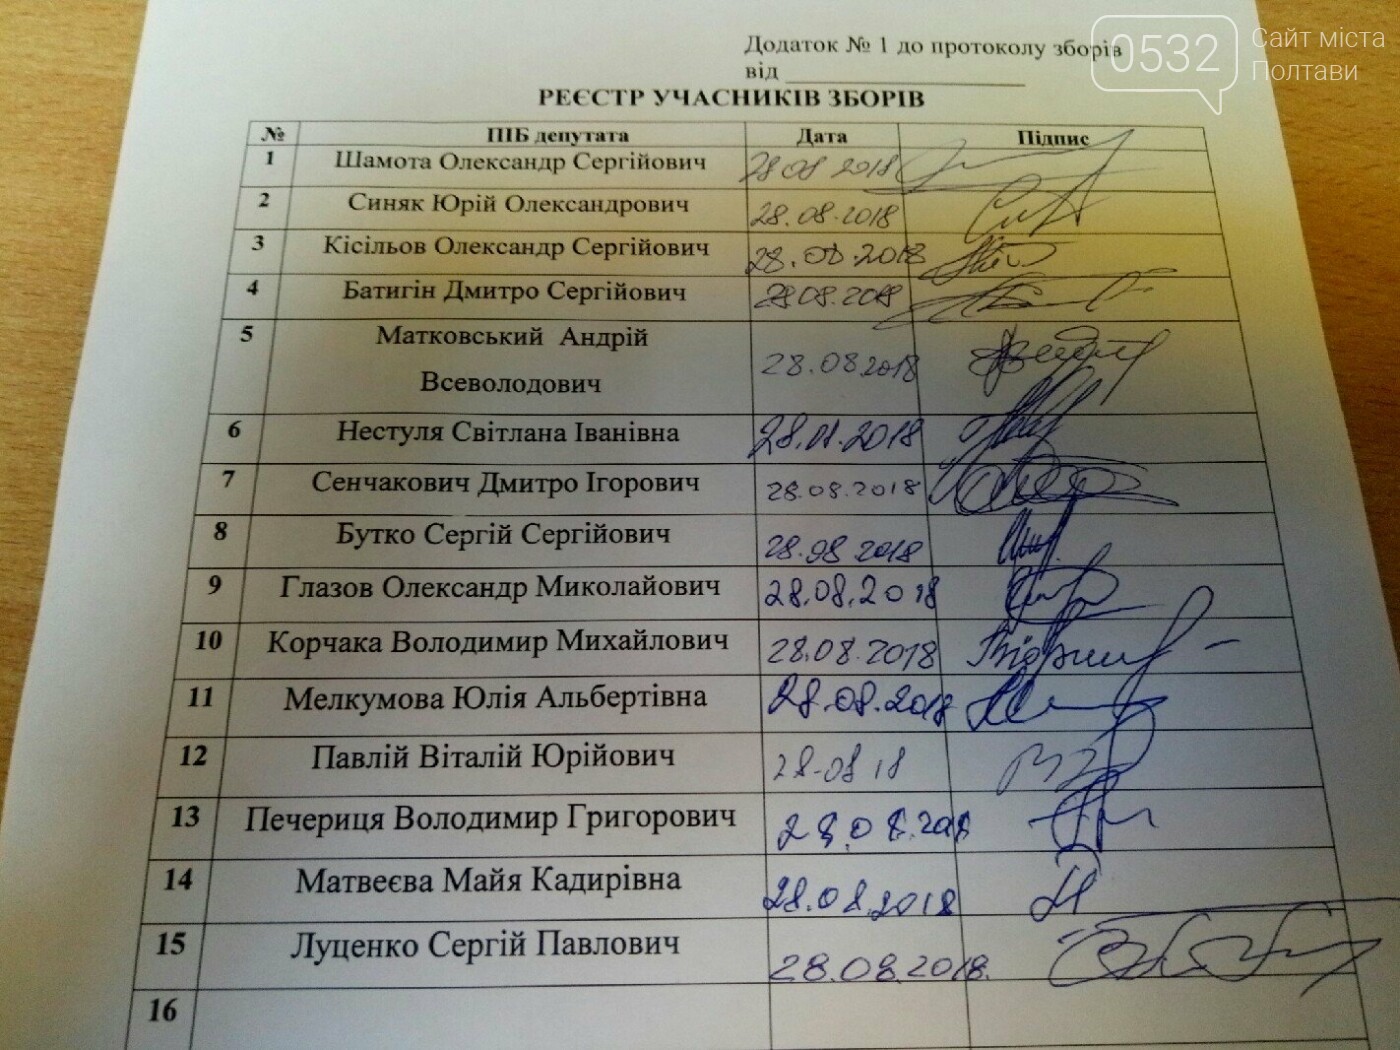 0532 Сайт міста
Полтави
Додаток № 1 до протоколу зборів
від
РЕЄСТР УЧАСНИКІВ ЗБОРІВ
№ ПІБ депутата Дата Підпис
1 Шамота Олександр Сергійович 28.08 2018
2 Синяк Юрій Олександрович 28.08.2018
3 Кісільов Олександр Сергійович 28.08.2018
4 Батигін Дмитро Сергійович 28.08.2018
5 Матковський Андрій
Всеволодович 28.08.2018
6 Нестуля Світлана Іванівна 2018
7 Сенчакович Дмитро Ігорович 28.08.2018
8 Бутко Сергій Сергійович 28.08.2018
9 Глазов Олександр Миколайович 28.08.2018
10 Корчака Володимир Михайлович 28.08.2018
11 Мелкумова Юлія Альбертівна 28.08.2018
12 Павлій Віталій Юрійович 28-08 18
13 Печериця Володимир Григорович
14 Матвеєва Майя Кадирівна 28.08.2018
15 Луценко Сергій Павлович 28.08.2018.
16